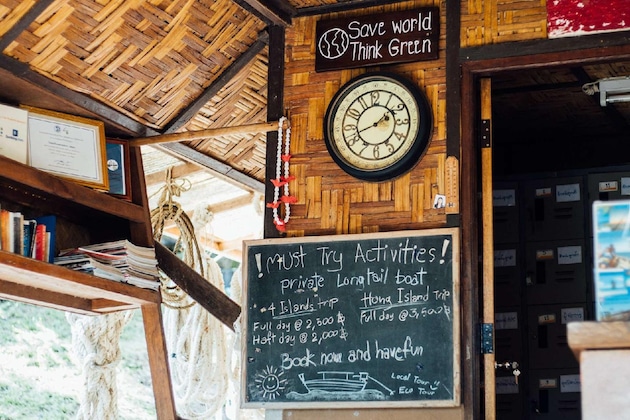 Save world
Think Green
! Must Try Activities !
private Longtail boat
4 Islands trip
Full day @ 2,500 ฿
Haft day @ 2,000 ฿
Hong Island Trip
Full day @ 3,500 ฿
Book now and have fun
Local Tour
Eco Tour